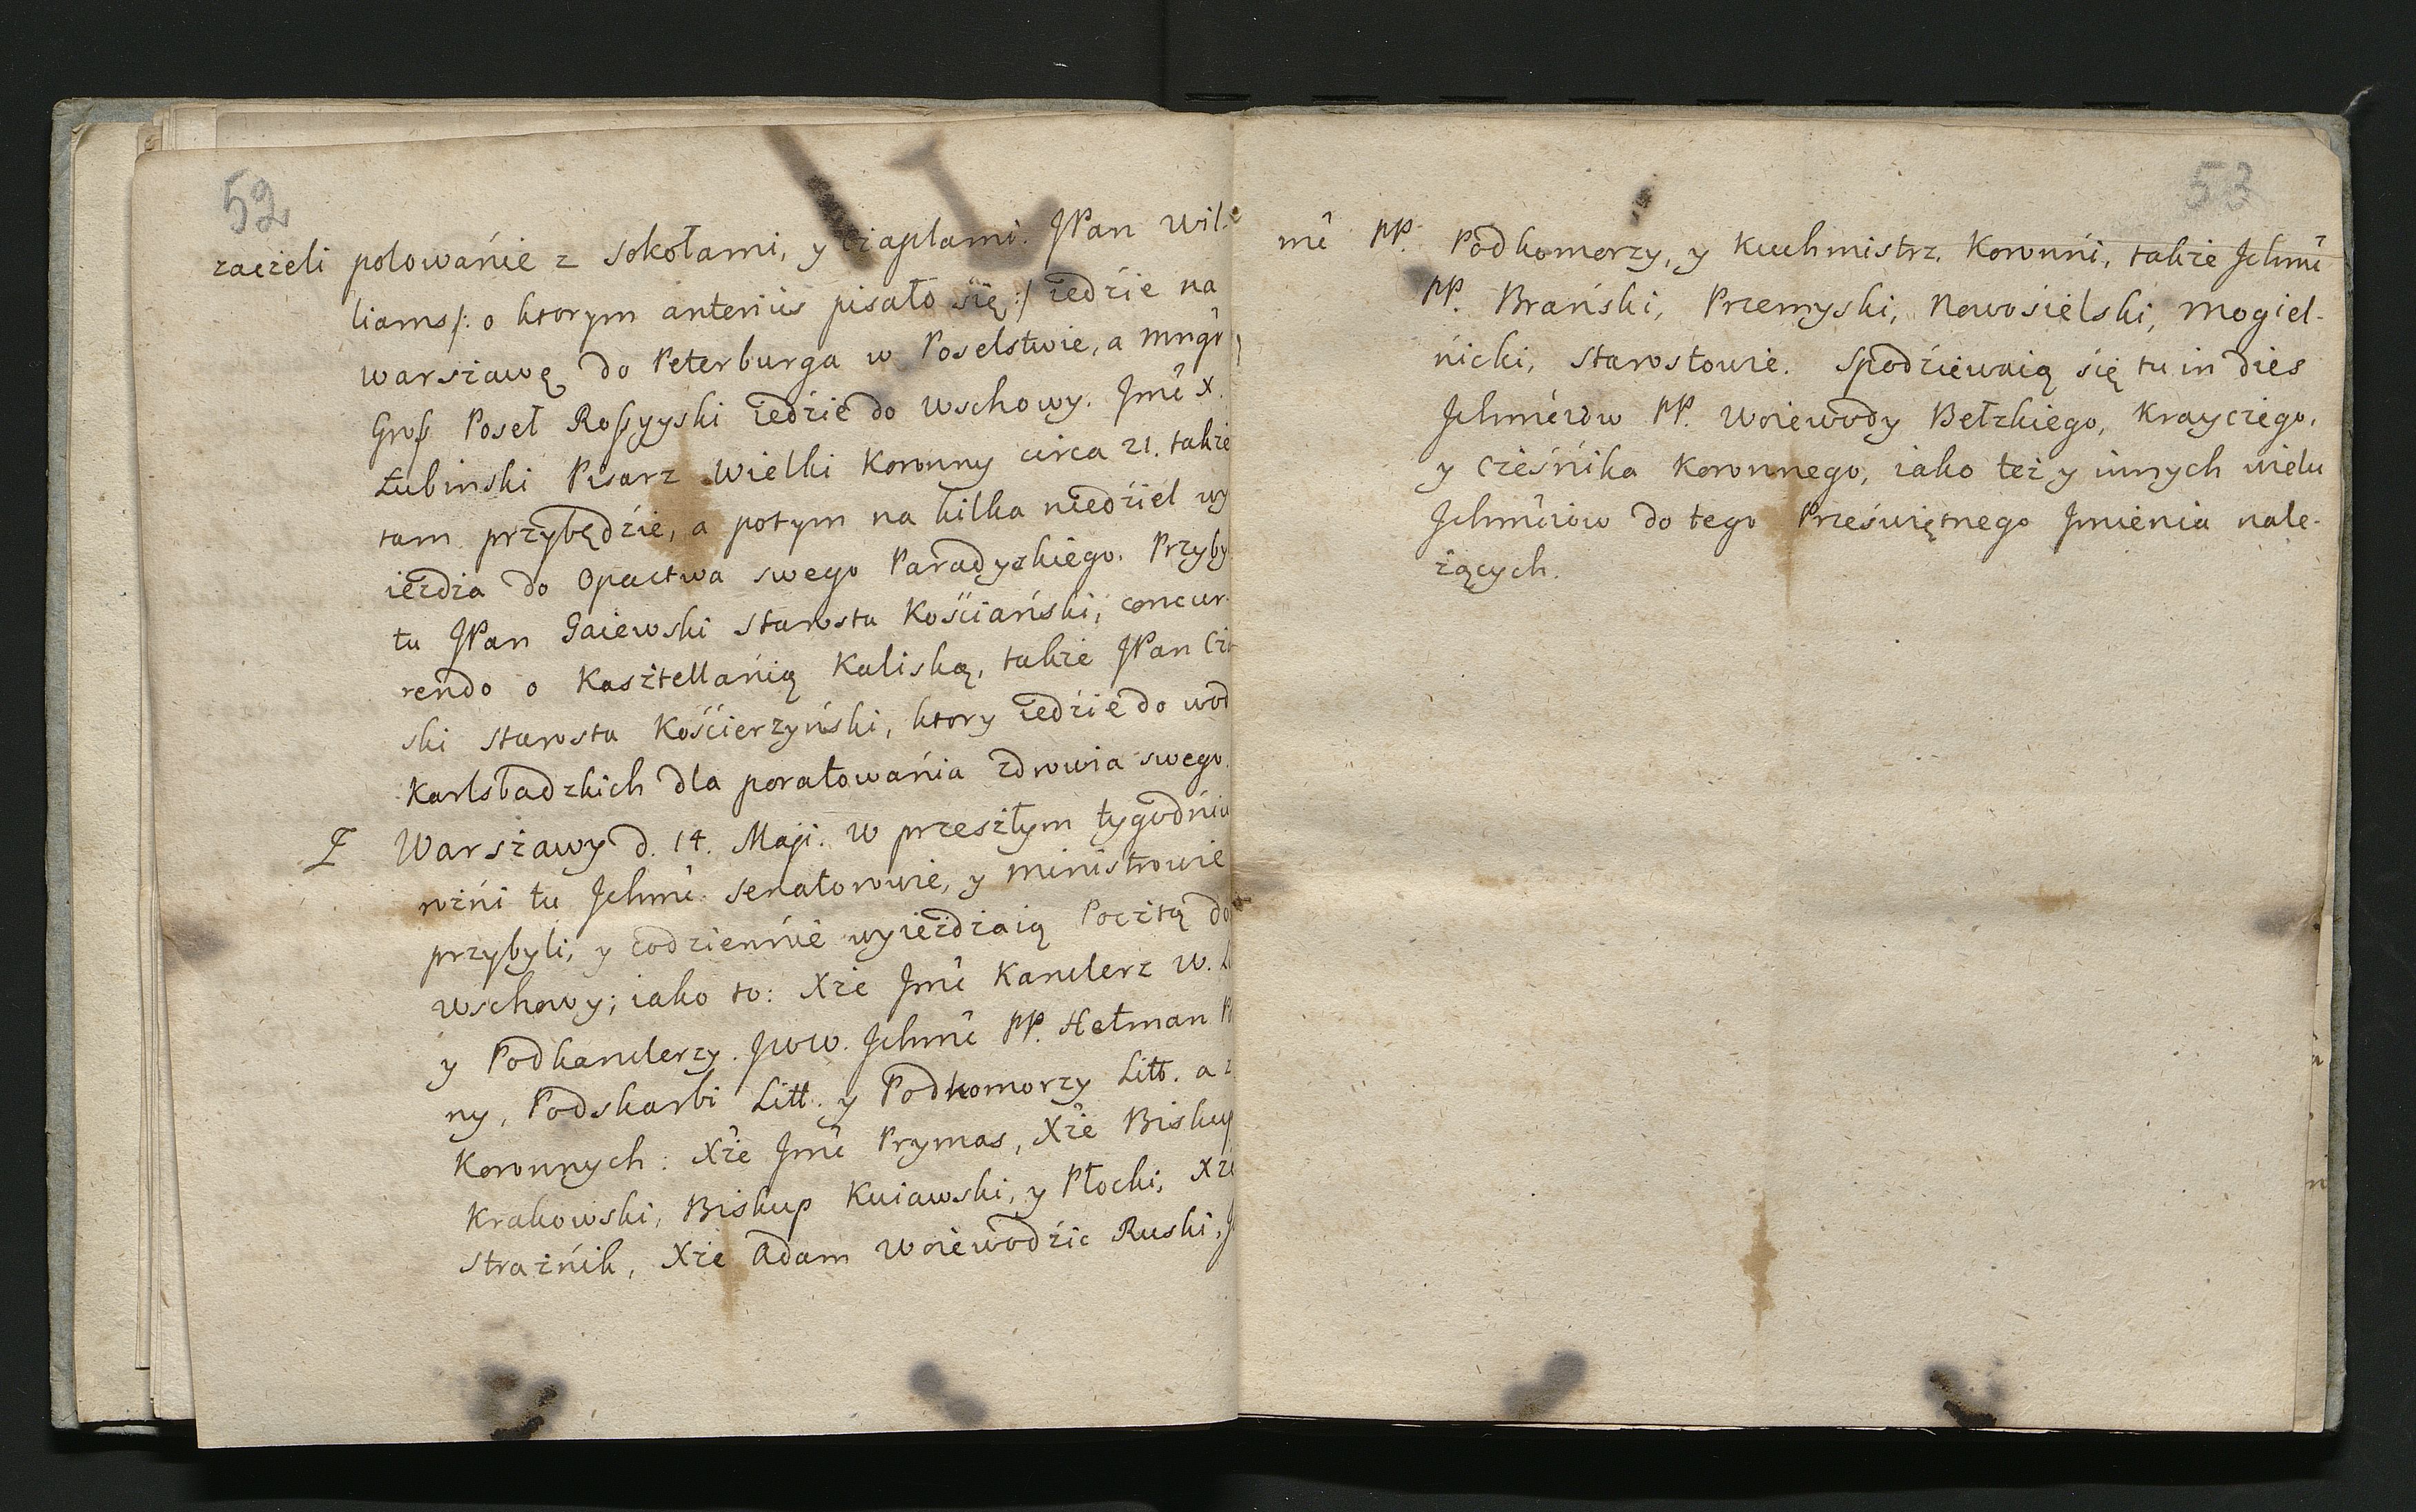 52
zaczeli polowańie z sokołami, y czaplami. JPan Wil-
liams /: o ktorym anterius pisało się :/ iedźie na
Warszawę do Peterburga w Poselstwie, a Mngr
Gross Poseł Rossyyski iedźie do Wschowy. Jmć X.
Łubinski Pisarz Wielki Koronny circa 21. także
tam przybędźie, a potym na kilka niedźiel wy
ieżdża do Opactwa swego Paradyzkiego. Przyby
tu JPan Gaiewski Starosta Kośćiański, concur-
rendo o Kasztellańią Kaliską, także JPan
ski Starosta Kośćierzyński, ktory iedźie do wod
Karlsbadzkich dla poratowańia zdrowia swego.
Z Warszawy d. 14. Maji. W przeszłym tygodńiu
rożńi tu Jchmć Senatorowie, y Ministrowie
przybyli, y codziennie wyieżdżaią Pocztą do
Wschowy; iako to: Xże Jmć Kanclerz W.
y Podkanclerzy. JWW. Jchmć PP. Hetman
ny, Podskarbi Litt. y Podkomorzy Litt. a z
Koronnych: Xże Jmć Prymas, Xże Biskup
Krakowski, Biskup Kuiawski, y Płocki, Xże
Strażńik, Xże Adam Woiewodźic Ruski,
53
mć PP. Podkomorzy, y Kuchmistrz Koronńi, także Jchmć
PP. Brański, Przemyski, Nowosielski, Mogiel-
ńicki, Starostowie. Spodźiewaią się tu in dies
Jchmćiow PP. Woiewody Bełzkiego, Krayczego,
y Cześńika Koronnego, iako też y innych wielu
Jchmćiow do tego Przeświętnego Jmienia nale-
żących.